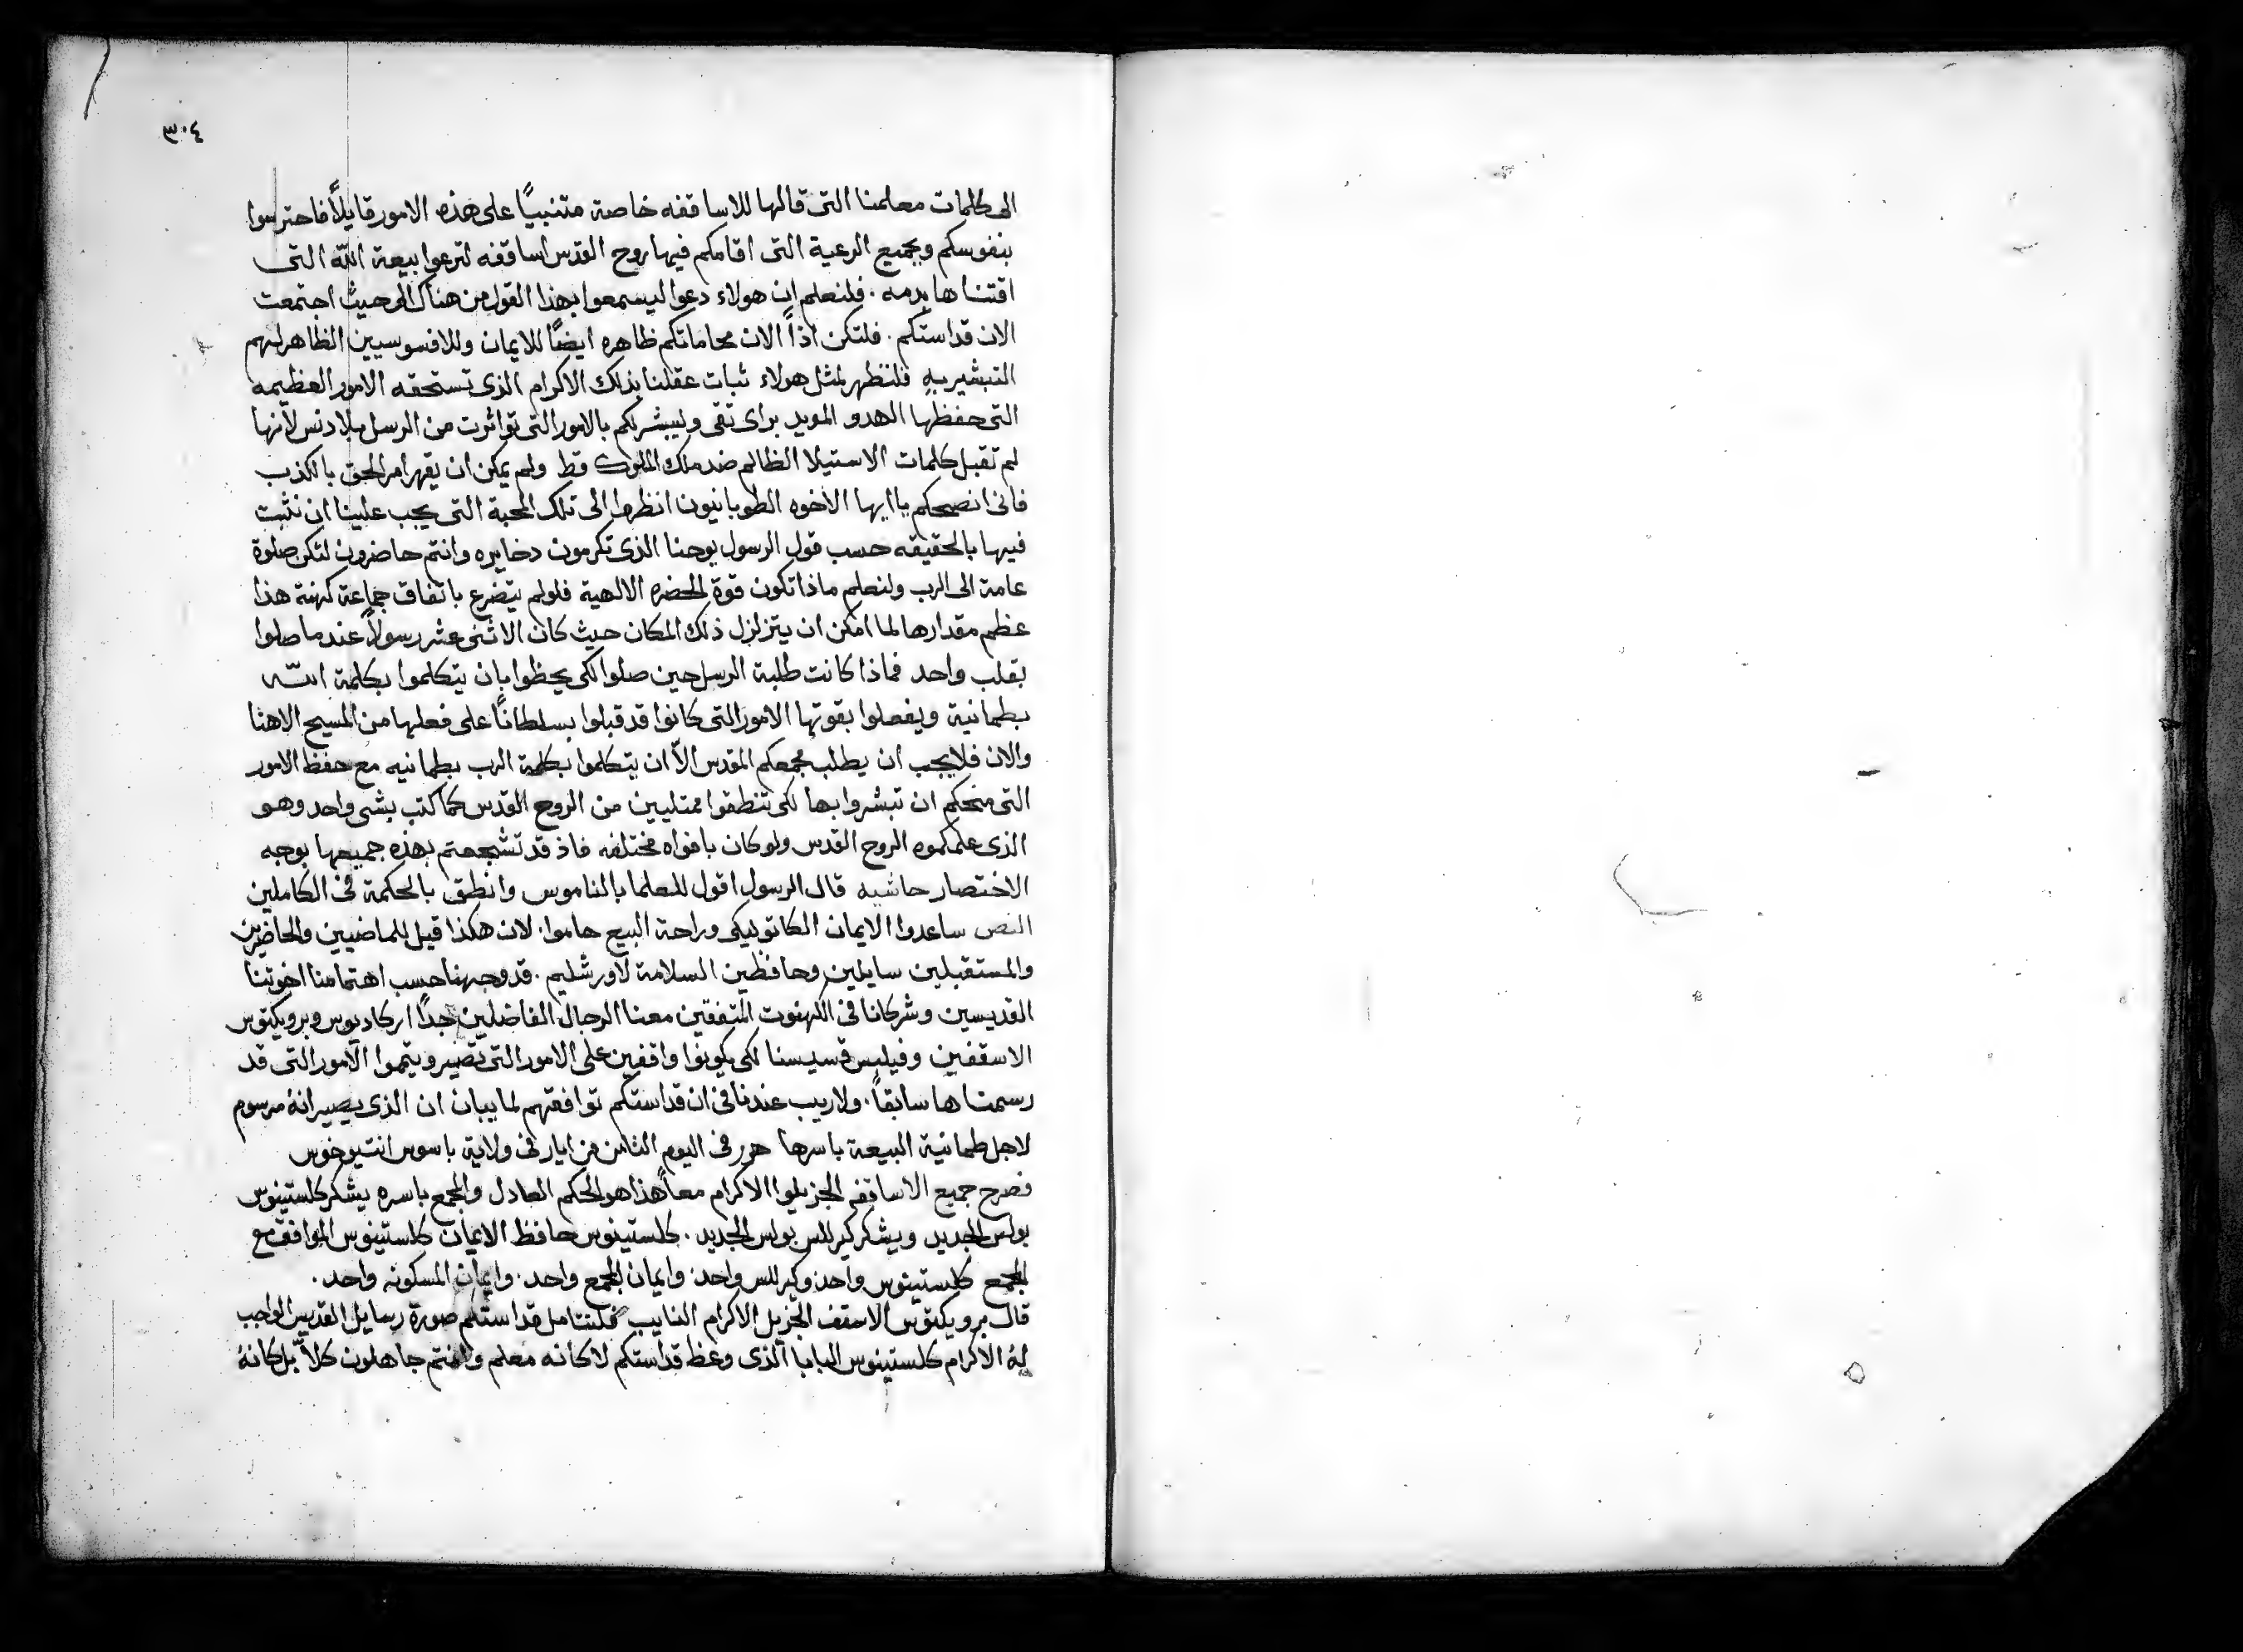 ٣٠٤
الى كلمات معلمنا التى قالها للاساقفه خاصة متنبيًا على هذه الامور قايلاً فاحترسوا
بنفوسكم وبجميع الرعية التى اقامكم فيها روح القدس اساقفه لترعوا بيعة الله التى
اقتناها بدمه . فلنعلم ان هولاء دعوا ليسمعوا بهذا القول من هناك الى حيث اجتمعت
الان قداستكم . فلتكن اذاً الان محاماتكم ظاهره ايضًا للايمان وللافسوسيين الظاهر لهم
التبشير به فلنظهر لمثل هولاء ثبات عقلنا بذلك الاكرام الذى تستحقه الامور العظيمه
التى حفظها الهدو المويد براى تقى وليبشر لكم بالامور التى تواترت من الرسل بلا دنس لانها
لم تقبل كلمات الاستيلا الظالم ضد ملك الملوك قط ولم يمكن ان يقهر امر الحق بالكذب
فانى انصحكم يا ايها الاخوه الطوبانيون انظروا الى تلك المحبة التى يجب علينا ان نثبت
فيها بالحقيقه حسب قول الرسول يوحنا الذى تكرمون دخايره وانتم حاضرون لتكن صلوة
عامة الى الرب ولنعلم ماذا تكون قوة الحضره الالهية فلو لم يتضرع باتفاق جماعة كهنة هذا
عظم مقدارها لما امكن ان يتزلزل ذلك المكان حيث كان الاثنى عشر رسولاً عندما صلوا
بقلب واحد فماذا كانت طلبة الرسل حين صلوا لكى يحظوا بان يتكلموا بكلمة الله
بطمانية ويفعلوا بقوتها الامور التى كانوا قد قبلوا بسلطانًا على فعلها من المسيح الاهنا
والان فلا يجب ان يطلب مجمعكم المقدس الاّ ان يتكلموا بكلمة الرب بطمانيه مع حفظ الامور
التى منحكم ان تبشروا بها لكى تنطقوا ممتليين من الروح القدس كما كتب بشى واحد وهو
الذى علمكموه الروح القدس ولو كان بافواه مختلفه فاذ قد تشجعتم بهذه جميعها بوجه
الاختصار حاشيه قال الرسول اقول للعلما بالناموس وانطق بالحكمة فى الكاملين
النص ساعدوا الايمان الكاتوليكى وراحة البيع حاموا . لان هكذا قيل للماضيين والحاضرين
والمستقبلين سايلين وحافظين السلامة لاورشليم . قد وجهنا حسب اهتمامنا اخوتنا
القديسين وشركانا فى الكهنوت المتفقين معنا الرجال الفاضلين جدًا اركاديوس وبرويكتوس
الاسقفين وفيلبس قسيسنا لكى يكونوا واقفين على الامور التى تصير ويتموا الامور التى قد
رسمناها سابقاً . ولا ريب عندنا فى ان قداستكم توافقتهم لما يبان ان الذى يصير انه مرسوم
لاجل طمانية البيعة باسرها حرر فى اليوم الثامن من ايار فى ولاية باسوس انتيوخوس
فصرح جميع الاساقفه الجزيلوا الاكرام معاً هذا هو الحكم العادل والمجمع باسره يشكر كلستينوس
بولس الجديد ويشكر كيرللس بولس الجديد . كلستينوس حافظ الايمان كلستينوس الموافق مع
المجمع كلستينوس واحد وكيرللس واحد وايمان المجمع واحد . وايمان المسكونه واحد .
قال برويكتوس الاسقف الجزيل الاكرام النايب فلنتامل قداستكم صورة رسايل القديس الواجب
له الاكرام كلستينوس البابا الذى وعظ قداستكم لا كانه معلم وانتم جاهلون كلاّ بل كانه